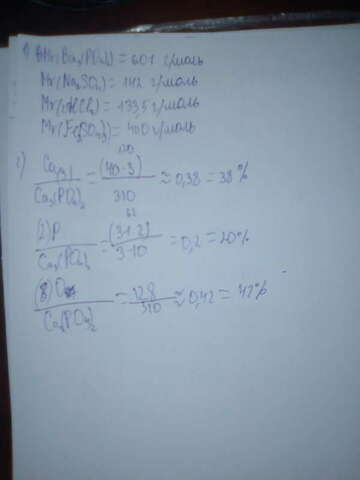 1) Mr(Ba3(PO4)2) = 601 г/моль
Mr(Na2SO4) = 142 г/моль
Mr(AlCl3) = 133,5 г/моль
Mr(Fe2(SO4)3) = 400 г/моль
2) Ca(3)
120
Ca3(PO4)2 = (40·3) / 310 ≈ 0,38 = 38%
62
(2)P / Ca3(PO4)2 = (31·2) / 310 = 0,2 = 20%
(8)O / Ca3(PO4)2 = 128 / 310 ≈ 0,42 = 42%